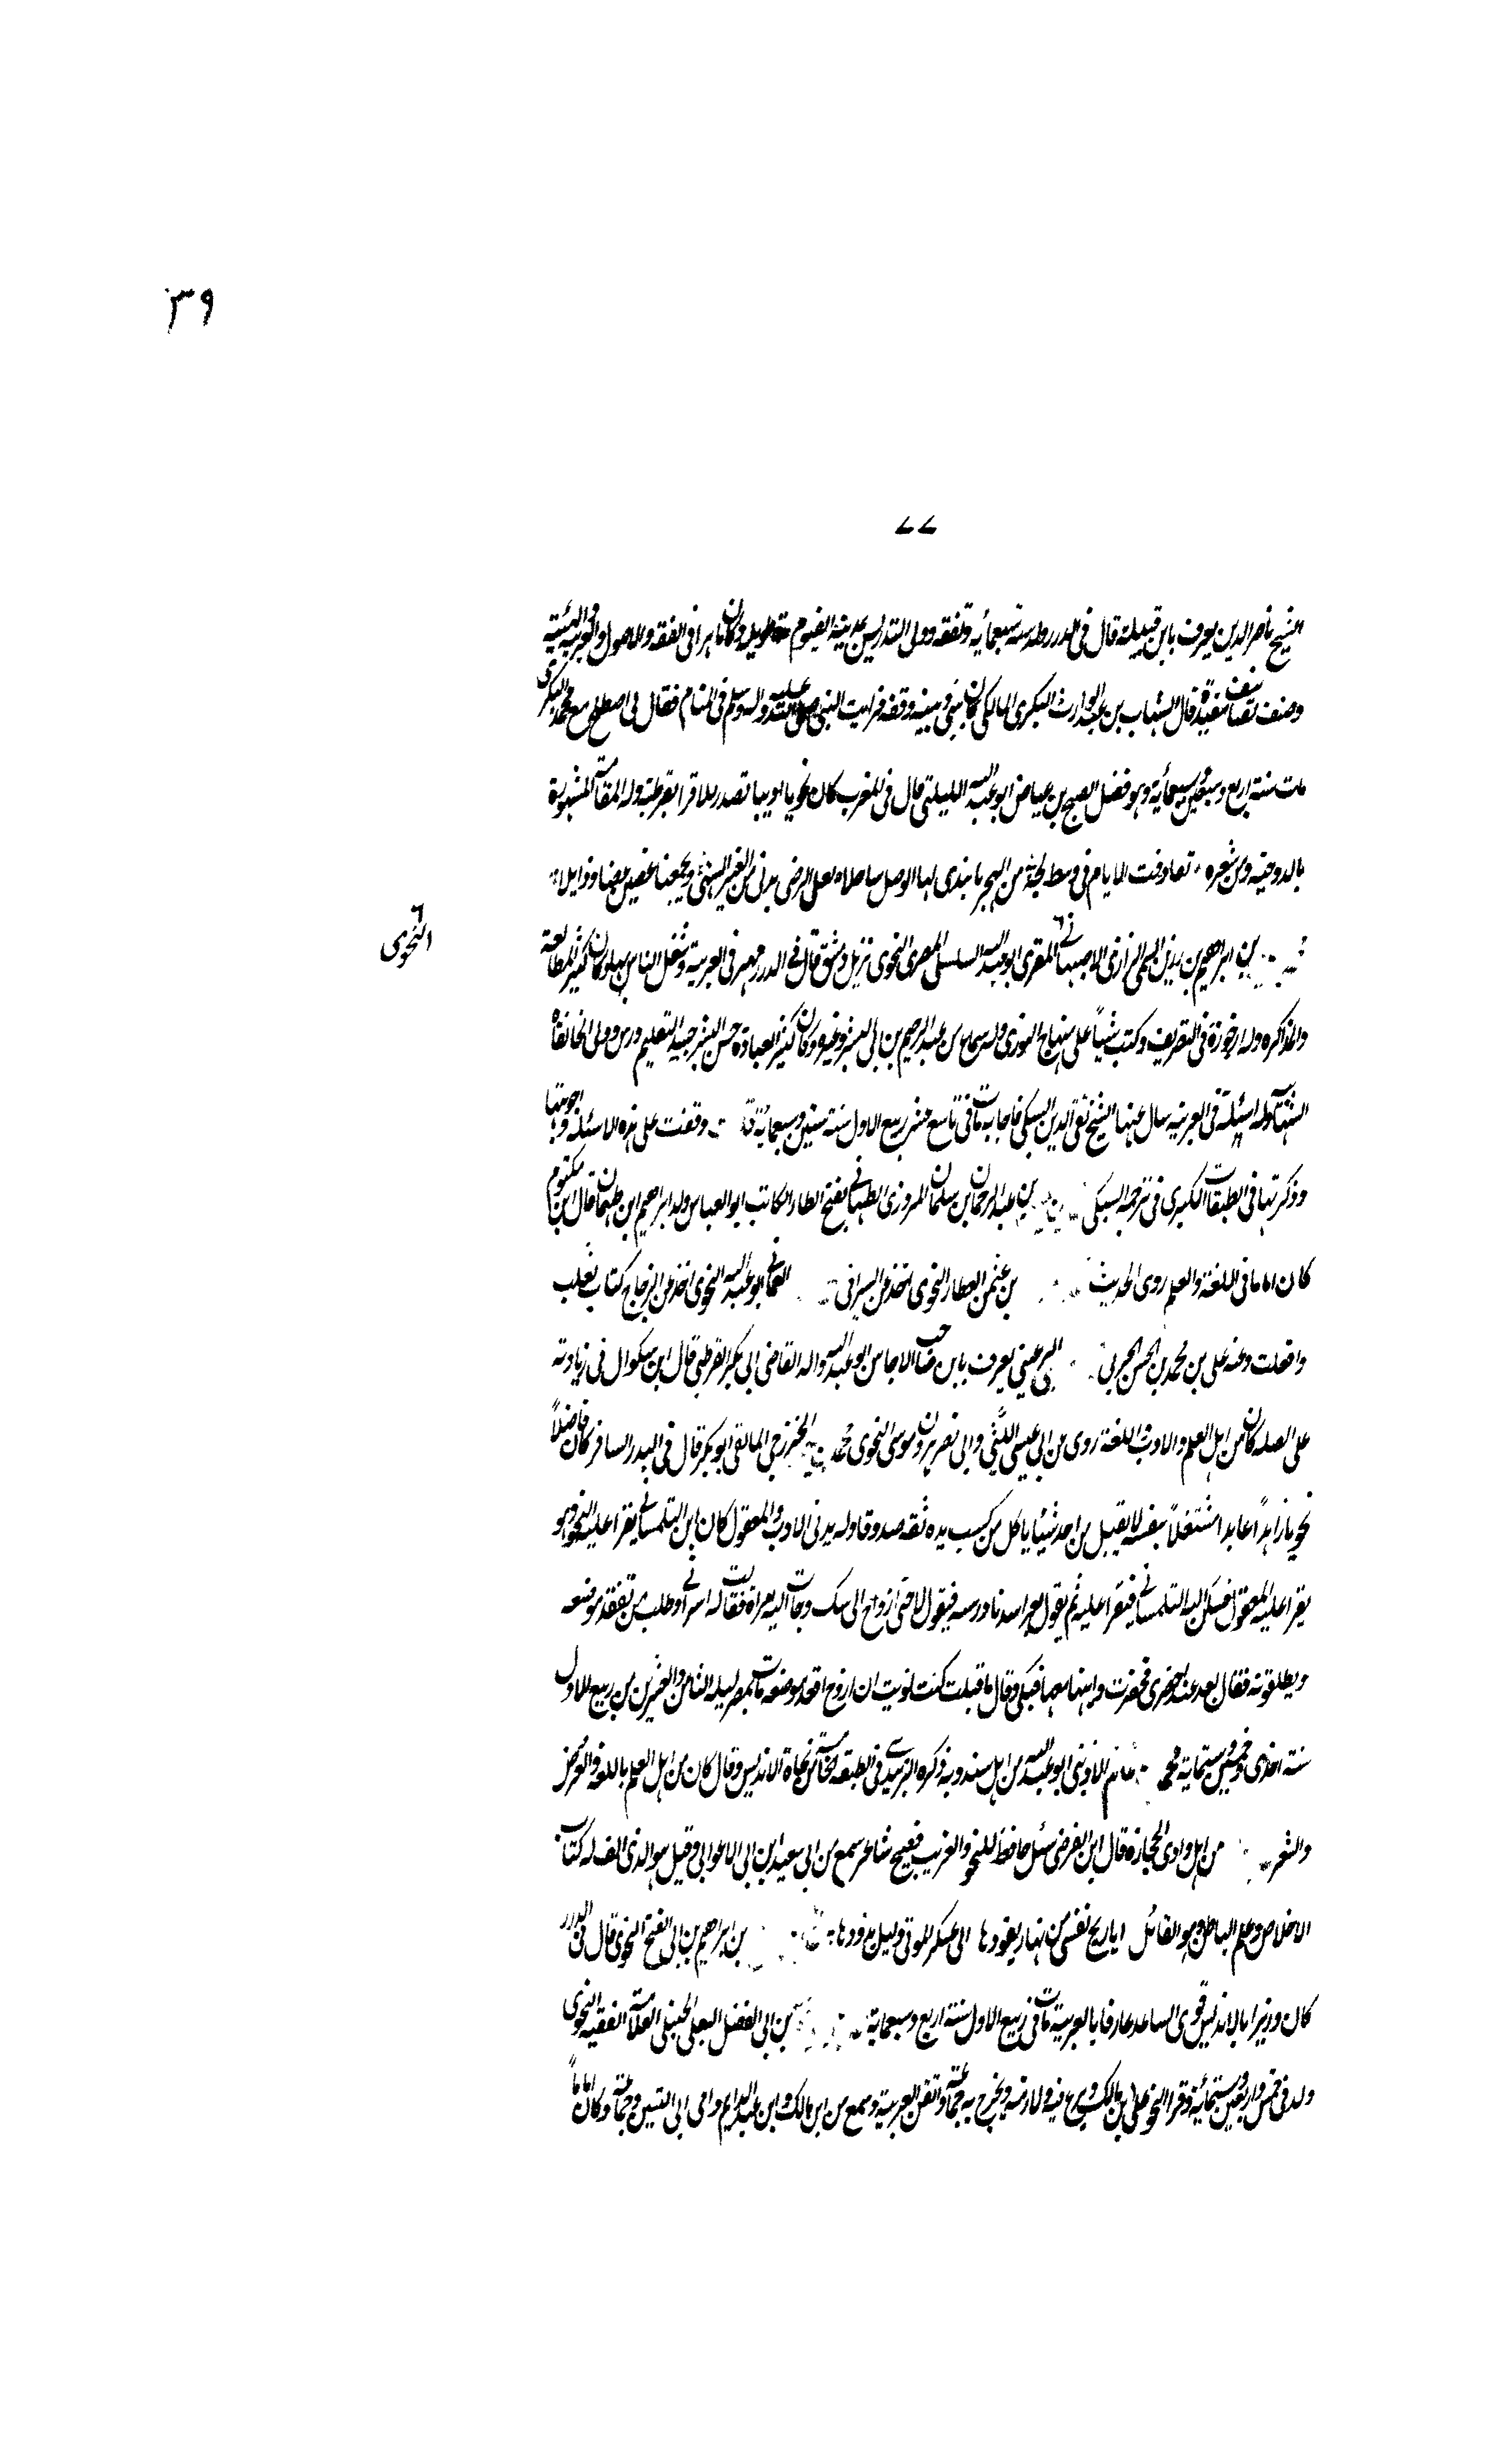 ٣٩
٧٧
الشيخ ناصر الدين يعرف بابن قبيلة قال في الدرر ولد سنة سبعمائة وتفقه وولى التدريس بمدينة الفيوم مدة طويلة وكان ماهرا فى الفقه والاصول والعربية والهيئة
وصنف تصانيف مفيدة قال الشهاب بن عبد الوارث البكرى المالكى كان بينى وبينه وقفة فرايت النبى صلى الله عليه واله وسلم فى المنام فقال لى اصطلح مع محمد البكرى
مات سنة اربع وسبعين وسبعمأية وهو فضل بن عياض ابو عبد الله قال فى المغرب كان نحويا اديبا تصدر للاقرا بقرطبة وله المقامة المشهورة
بالدوحية ومن شعره الايام فى وسط لجة من الهجر لها الوصل ساحلاه لعل الرضى يدنى من ويجمعنا
النحوى
بن ابراهيم بن المقرى ابو عبد الله المصرى النحوى نزيل دمشق قال فى الدرر مهر فى العربية وشغل الناس بها وكان كثير المطالعة
والمذاكره وله ارجوزة فى التصريف وكتب شيئاً على منهاج النووى وله سماع من عبد الرحيم بن ابى اليسر وغيره وكان كثير العبادة حسن البشر جيد التعليم درس وولى الخانقاه
وله اسئلة فى العربية سال عنها الشيخ تقى الدين السبكى فاجابه مات فى تاسع عشر ربيع الاول سنة ستين وسبعماية قلت وقفت على هذه الاسئلة واجوبتها
وذكرتها فى الطبقات الكبرى فى ترجمة السبكى بن عبد الرحمان بن سلمان المروزى الطهمانى بفتح الطاء الكاتب ابو العباس ولد ابراهيم ابن طهمان قال ابن مكتوم
كان اماما فى اللغة والعلم روى الحديث بن العطار النحوى اخذ عن السيرافى العمانى ابو عبد الله النحوى اخذ عن الزجاج كتاب ثعلب
وافعلت وعنه على بن محمد بن الحسن الحربى الرعينى يعرف بابن صاحب الاحباس ابو عبد الله والد القاضى ابى بكر القرطبى قال ابن بشكوال فى زيادته
على الصلة كان من اهل العلم والادب واللغة روى عن ابى عيسى الليثى وابى نصر هرون بن موسى النحوى محمد الخزرجى المالقى ابو بكر قال فى البدر السافر كان فاضلاً
نحويا زاهداً عابدا مشتغلاً بنفسه لا يقبل من احد شيئا ياكل من كسب يده ثقة صدوقا وله يد فى الادب والمعقول كان ابن التلمسانى يقرا عليه النحو وهو
يقرا عليه المعقول فسكن اليه التلمسانى فيقرا عليه ثم يقول فيقول لا حتى ازواح الى مسكنك وجات اليه مراة فقالت له وطلب من تفقد موضعه
ويطلقونه فقال بعد غد احضرى فحضرت وابنها معها فبكى وقال ما قبلت كنت نويت ان اروح اقعد موضعه مات بمصر ليلة الثامن والعشرين من ربيع الاول
سنة احدى وخمسين وستماية محمد غانم ابو عبد الله من اهل ذكره الزبيدى فى الطبقة الخامسة من نحاة الاندلس وقال كان من اهل العلم باللغة والعروض
والشعر من اهل وادى الحجارة قال ابن الفرضى سئل حافظ للنحو والغريب فصيح شاعر سمع من ابى سعيد ابن الاعرابى وقيل هو الذى الف له كتاب
الاخلاص وعلم الباطن وهو القائل ايا ريح نفسى من نهار يقودها الى عسكر الموتى وليل يذودها بن ابراهيم بن ابى الفتح النحوى قال فى الدرر
كان وزيرا بالاندلس قوى الساعد عارفا بالعربية مات فى ربيع الاول سنة اربع وسبعماية بن ابى الفضل البعلى الحنبلى العلامة الفقيه النحوى
ولد فى خمس واربعين وستمائة وقرا النحو على ابن مالك وبرع فيه ولازمه وتخرج به جماعة واتقن العربية وسمع من ابن مالك وابن عبد الدايم وابن ابى اليسر وجماعة وكان اماماً